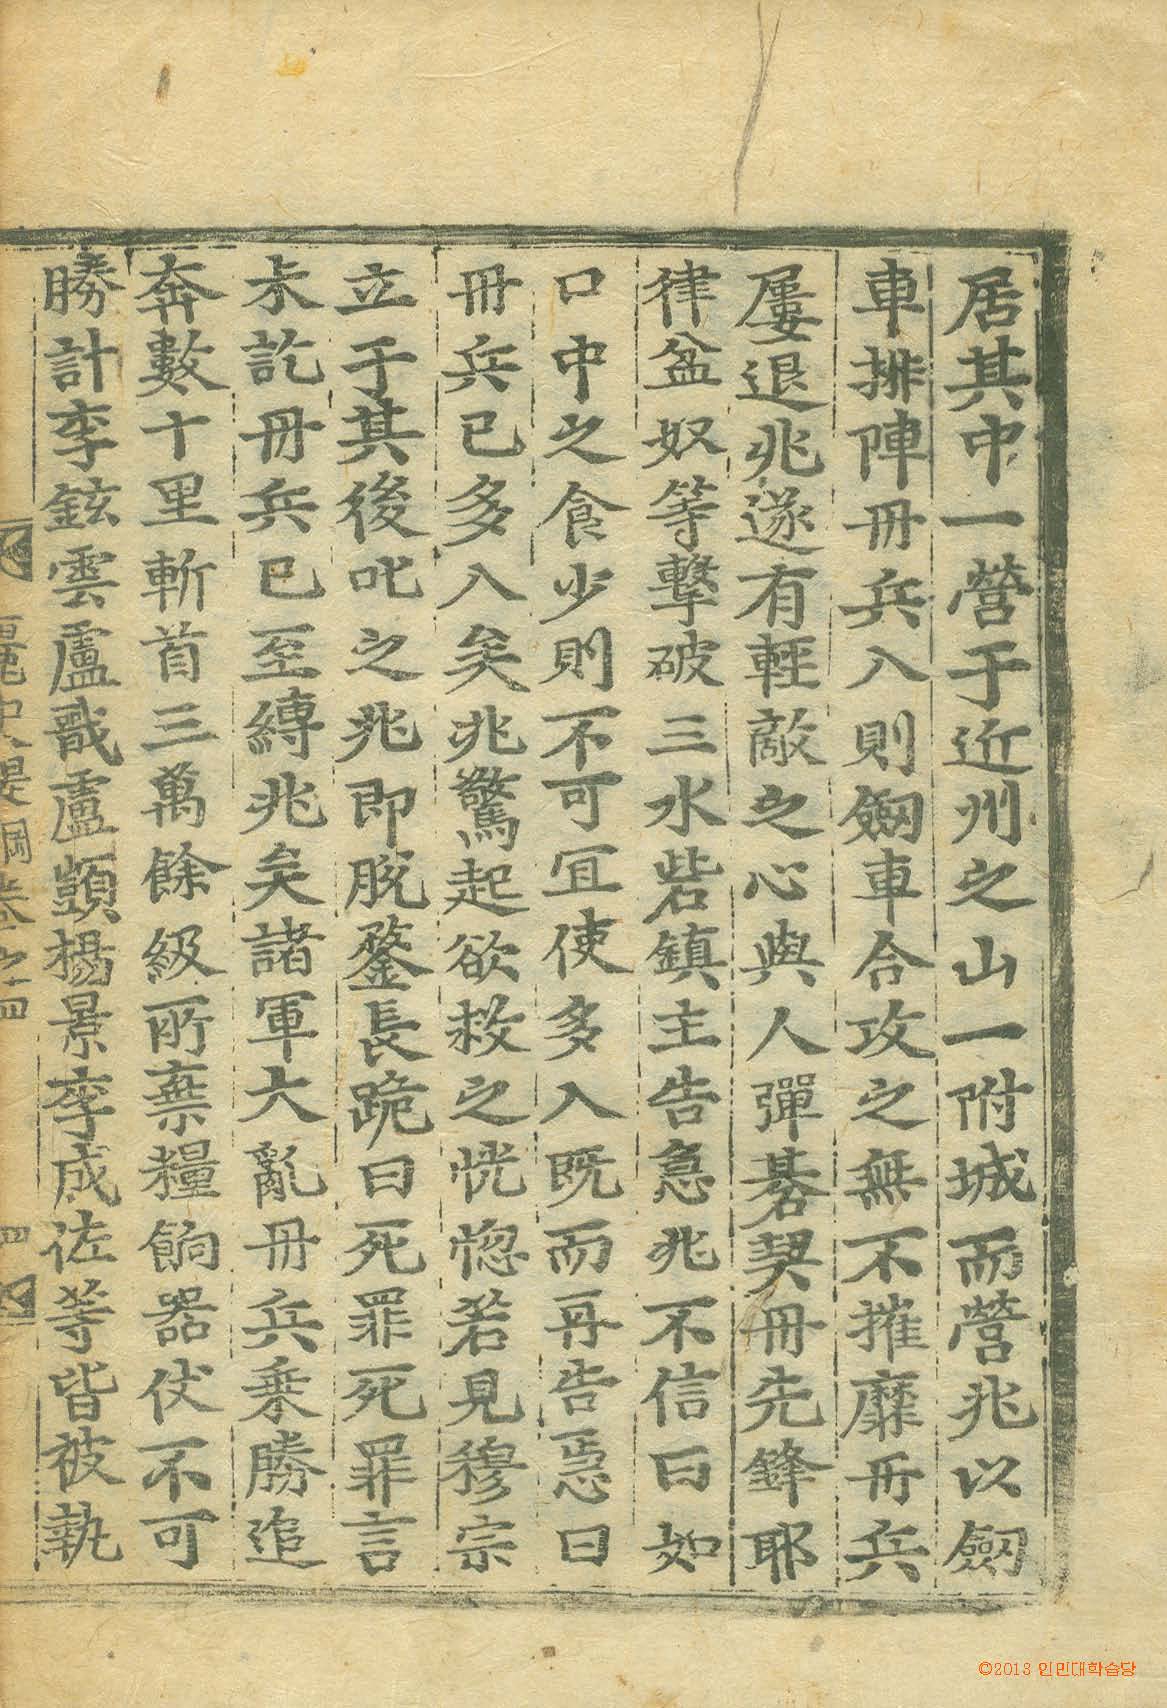 居其中一營于近州之山一附城而營兆以劔
車排陣冊兵入則劔車合攻之無不摧靡冊兵
屢退兆遂有輕敵之心與人彈碁契冊先鋒耶
律盆奴等擊破三水砦鎮主告急兆不信曰如
口中之食少則不可冝使多入既而再告急曰
冊兵已多入矣兆驚起欲救之恍惚若見穆宗
立于其後叱之兆即脱鍪長跪曰死罪死罪言
未訖冊兵已至縛兆矣諸軍大亂冊兵乗勝追
奔數十里斬首三萬餘級所棄糧餉器仗不可
勝計李鉉雲盧戩盧顗楊景李成佐等皆被執
麗史提綱卷之十四
四
©2013 인민대학습당